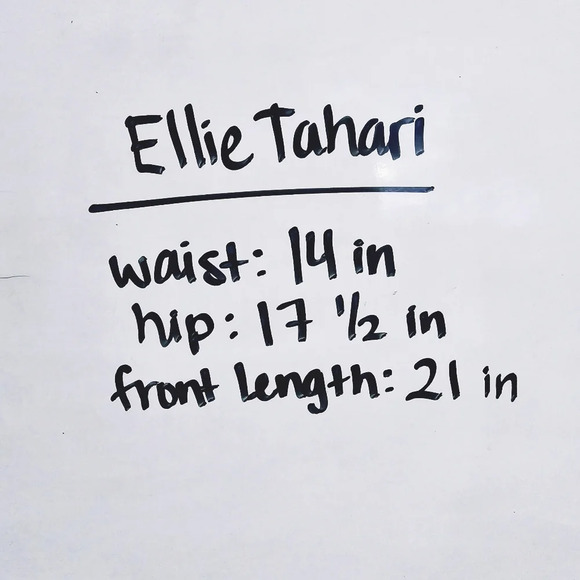 Ellie Tahari
waist: 14 in
hip: 17 1/2 in
front length: 21 in